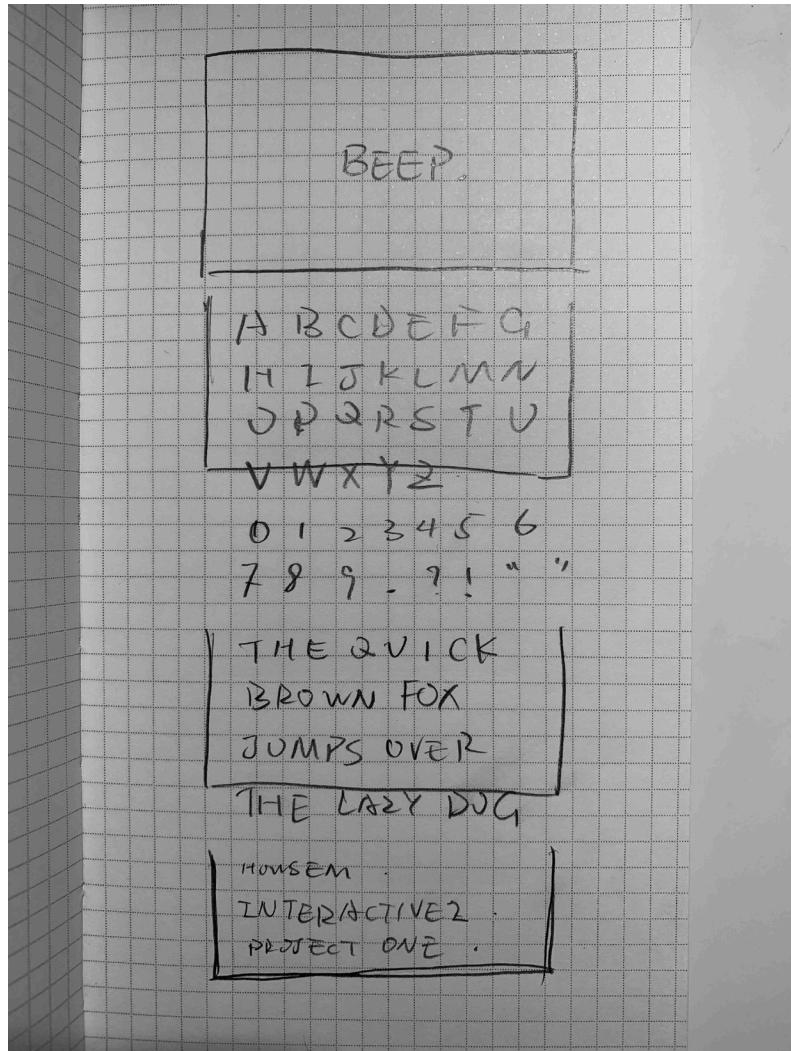 BEEP.
A B C D E F G
H I J K L M N
O P Q R S T U
V W X Y Z
0 1 2 3 4 5 6
7 8 9 . ? ! “ ”
THE QUICK
BROWN FOX
JUMPS OVER
THE LAZY DOG
HOWSEM .
INTERACTIVE2 .
PROJECT ONE .